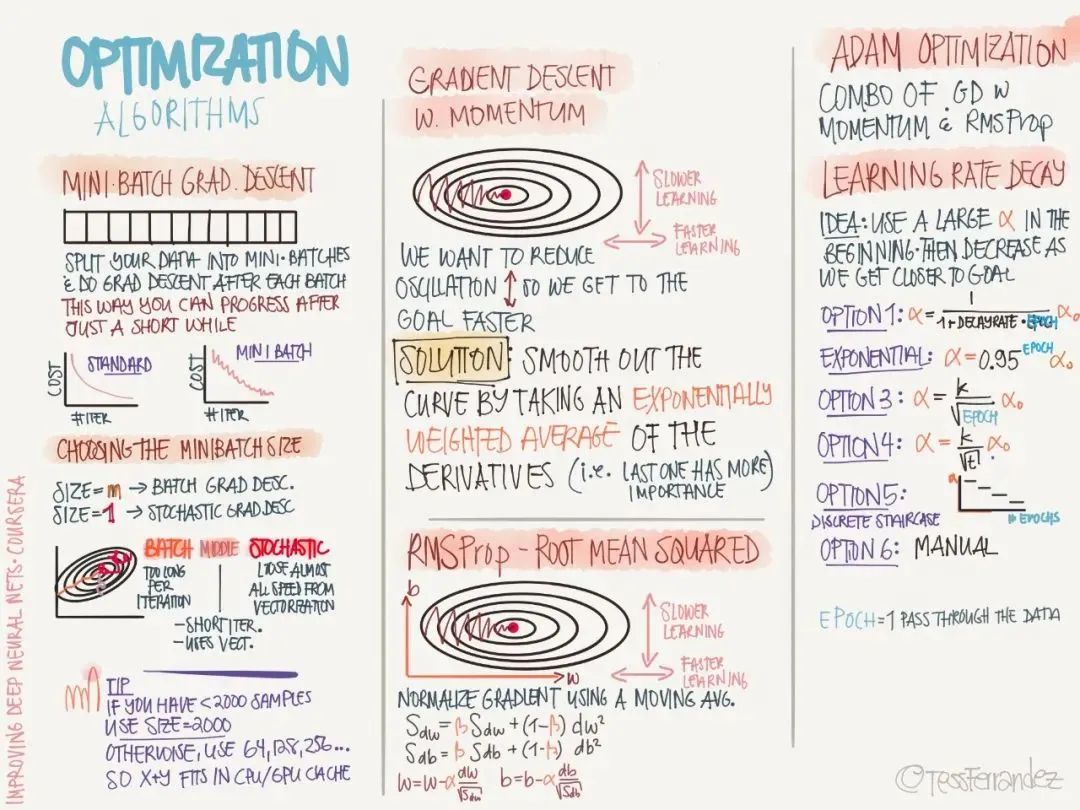 OPTIMIZATION
ALGORITHMS
MINI-BATCH GRAD. DESCENT
SPLIT YOUR DATA INTO MINI-BATCHES
& DO GRAD DESCENT AFTER EACH BATCH
THIS WAY YOU CAN PROGRESS AFTER
JUST A SHORT WHILE
COST
STANDARD
#ITER
COST
MINI BATCH
#ITER
CHOOSING THE MINIBATCH SIZE
SIZE=m → BATCH GRAD DESC.
SIZE=1 → STOCHASTIC GRAD DESC
BATCH MIDDLE STOCHASTIC
TOO LONG
PER
ITERATION
LOSE ALMOST
ALL SPEED FROM
VECTORIZATION
-SHORT ITER.
-USES VECT.
TIP
IF YOU HAVE <2000 SAMPLES
USE SIZE=2000
OTHERWISE, USE 64, 128, 256...
SO X+Y FITS IN CPU/GPU CACHE
IMPROVING DEEP NEURAL NETS·COURSERA
GRADIENT DESCENT
W. MOMENTUM
SLOWER
LEARNING
FASTER
LEARNING
WE WANT TO REDUCE
OSCILLATION ↕ SO WE GET TO THE
GOAL FASTER
SOLUTION: SMOOTH OUT THE
CURVE BY TAKING AN EXPONENTIALLY
WEIGHTED AVERAGE OF THE
DERIVATIVES (i.e. LAST ONE HAS MORE)
IMPORTANCE
RMSProp - ROOT MEAN SQUARED
b
SLOWER
LEARNING
W
FASTER
LEARNING
NORMALIZE GRADIENT USING A MOVING AVG.
Sdw = β Sdw + (1-β) dw²
Sdb = β Sdb + (1-β) db²
W=W-α dw/√Sdw b=b-α db/√Sdb
ADAM OPTIMIZATION
COMBO OF GD W
MOMENTUM & RMSProp
LEARNING RATE DECAY
IDEA: USE A LARGE α IN THE
BEGINNING·THEN DECREASE AS
WE GET CLOSER TO GOAL
OPTION 1: α = 1/(1+DECAYRATE·EPOCH) α₀
EXPONENTIAL: α = 0.95^EPOCH α₀
OPTION 3: α = k/√EPOCH α₀
OPTION 4: α = k/√t α₀
OPTION 5:
DISCRETE STAIRCASE
α
EPOCHS
OPTION 6: MANUAL
EPOCH = 1 PASS THROUGH THE DATA
©TessFerrandez